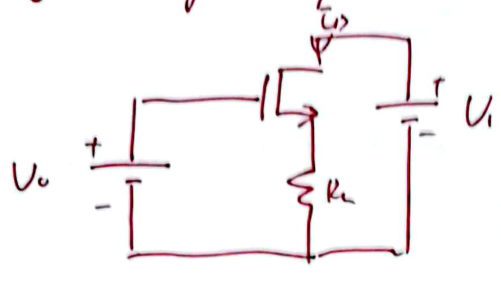 I_D
+
V₀
-
R_L
+
V₁
-